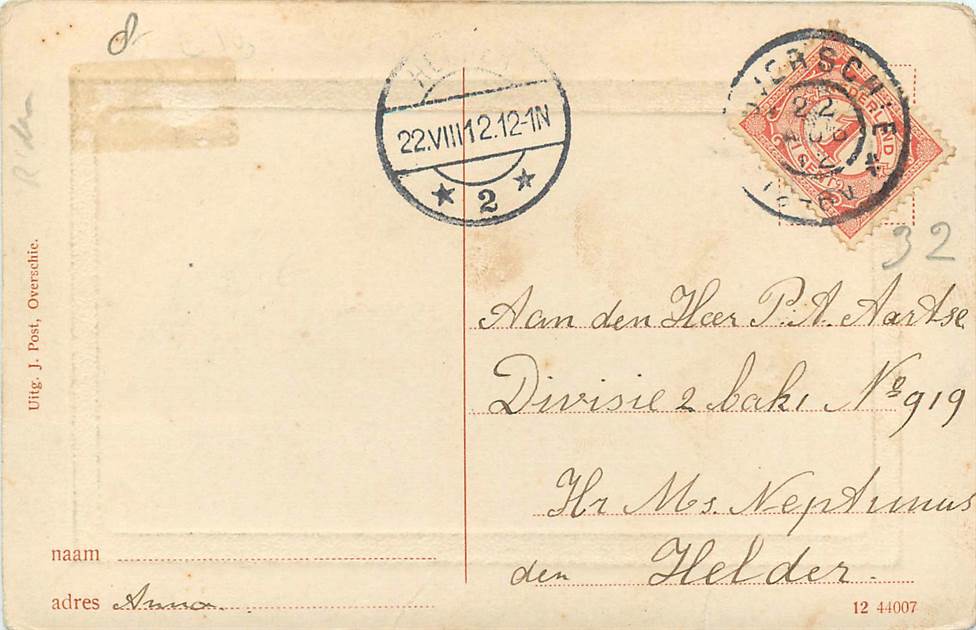 OVERSCHIE
NEDERLAND
22.VIII12.12-1N
2
32
Uitg. J. Post, Overschie.
Aan den Heer P. A. Aartse
Divisie 2 bak 1 No 919
Hr Ms. Neptunus
den Helder.
naam
adres Anna.
12 44007